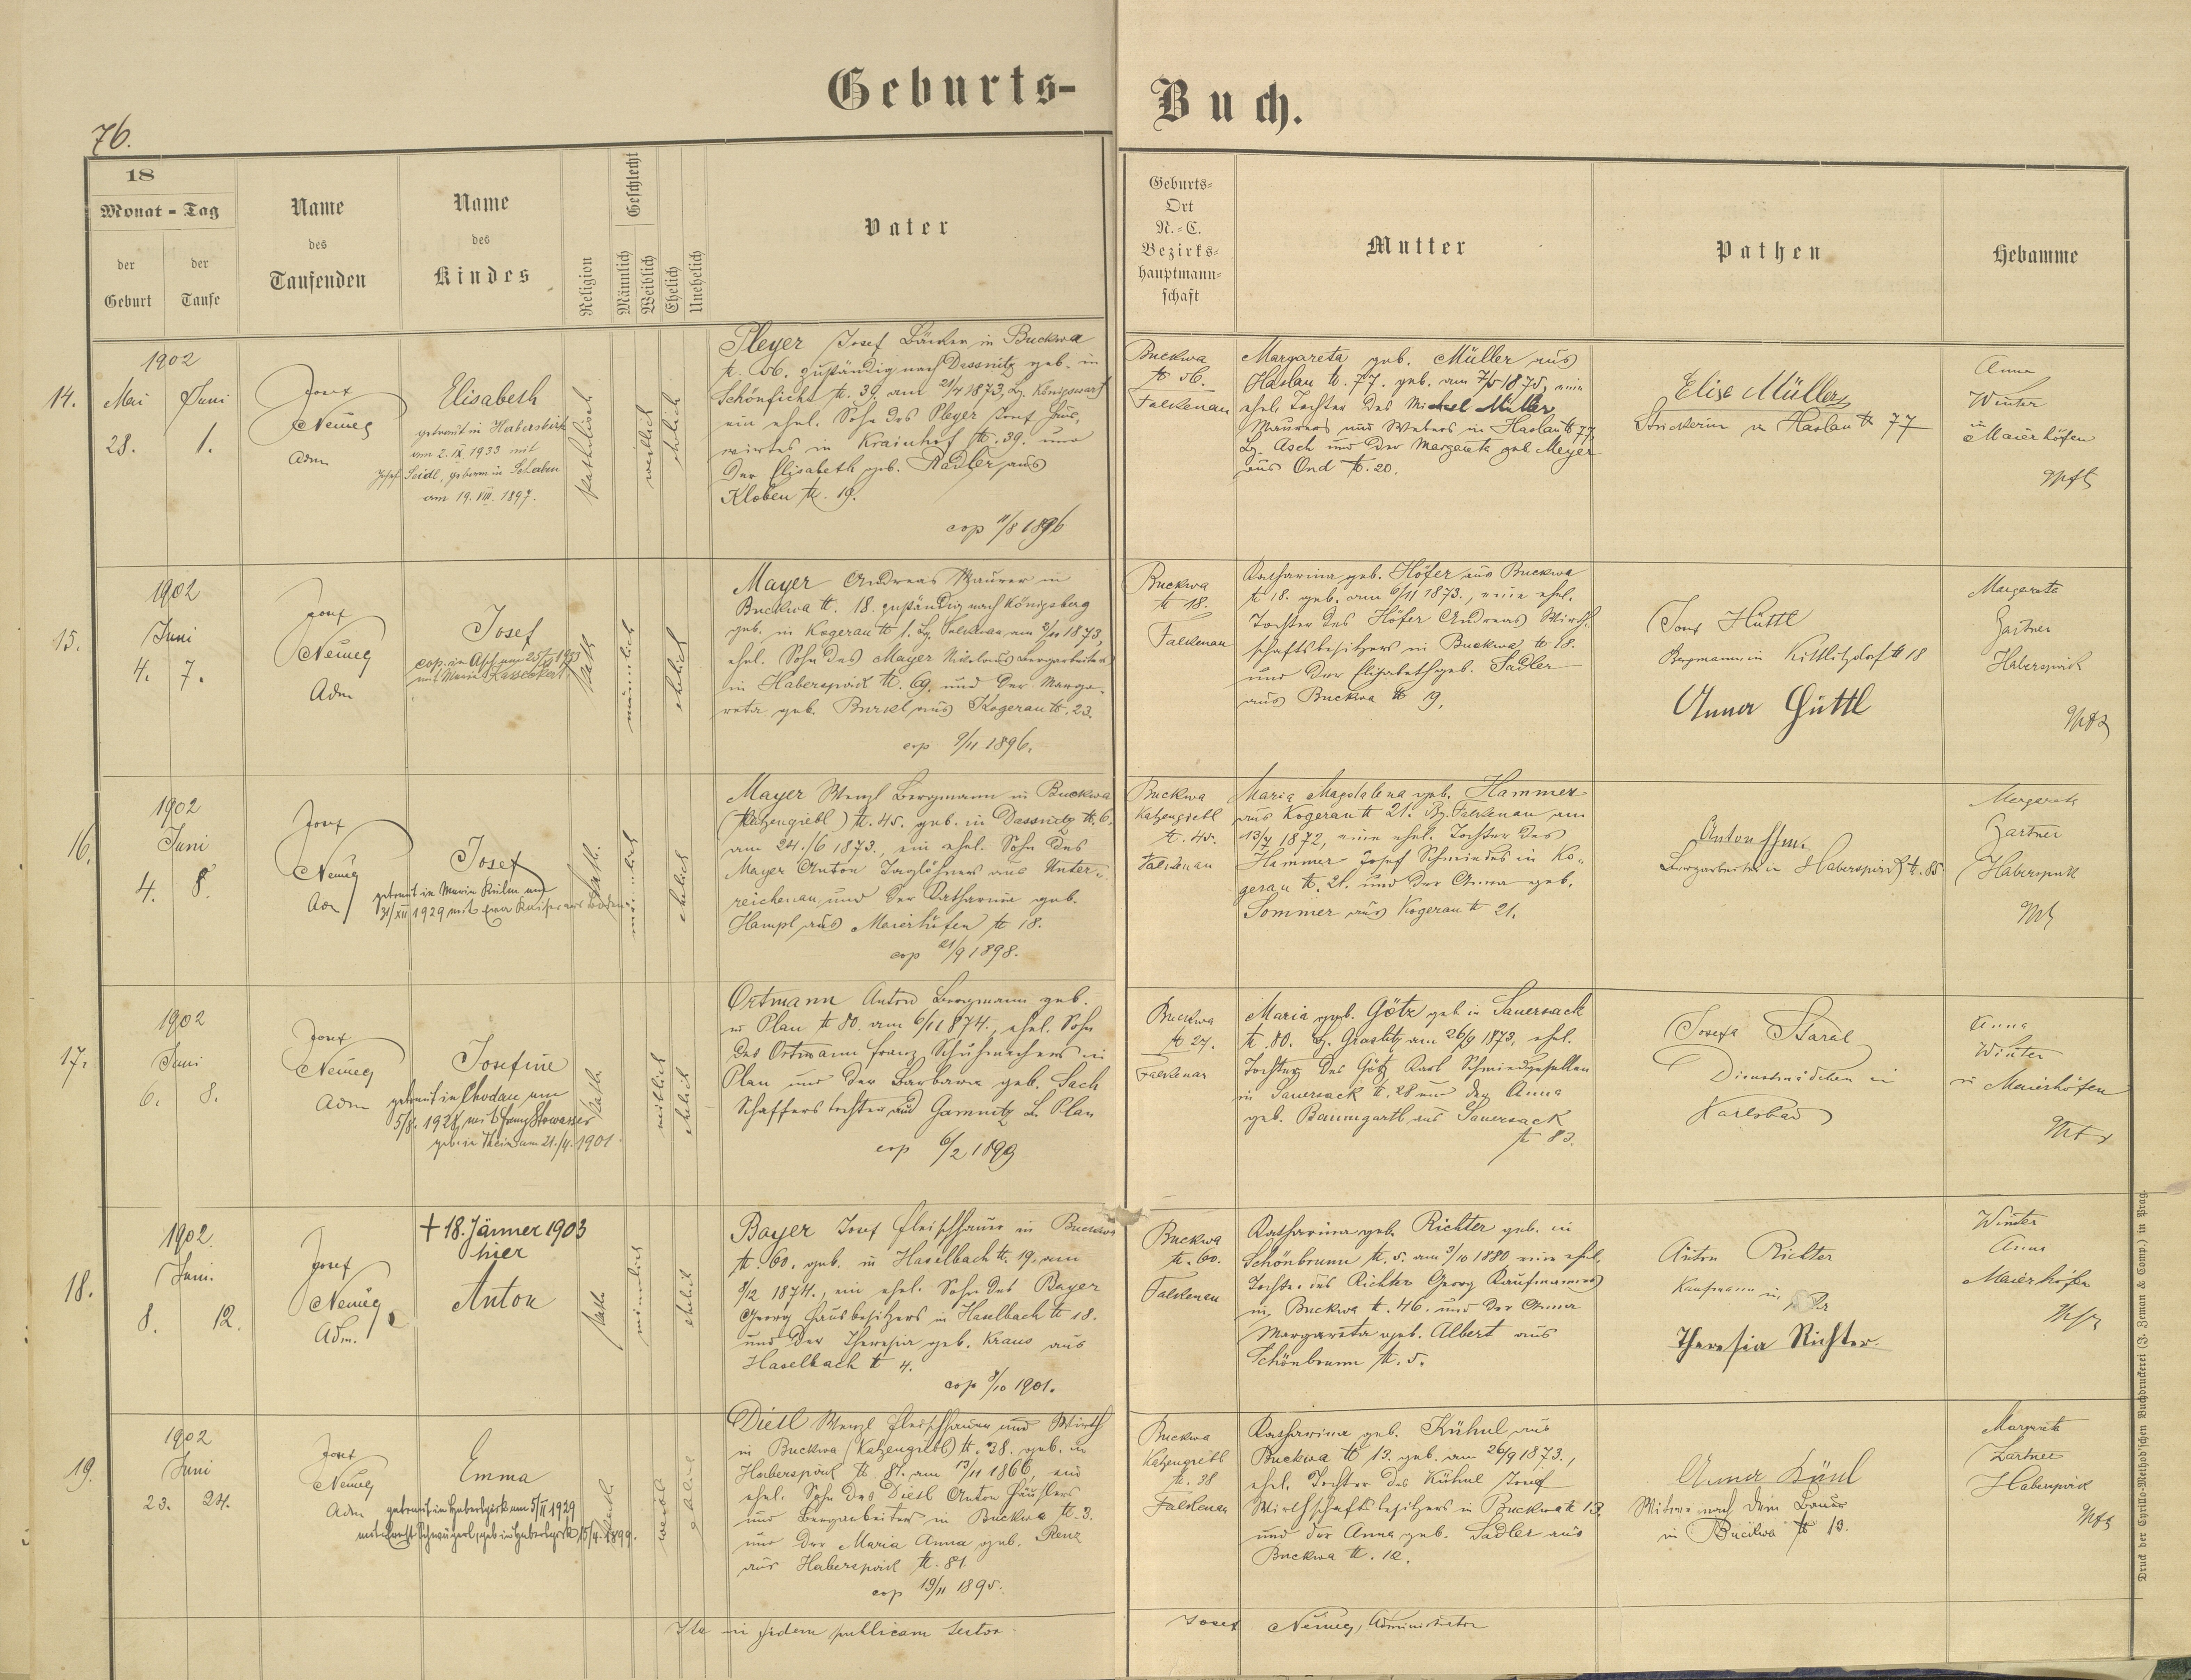 Geburts-Buch.
76.
18
Monat - Tag
der Geburt
der Taufe
Name des Taufenden
Name des Kindes
Religion
Geschlecht
Männlich
Weiblich
Ehelich
Unehelich
Vater
Geburts-
Ort
N.-C.
Bezirks-
hauptmann-
schaft
Mutter
Pathen
Hebamme
14.
1902
Mai Juni
28. 1.
Josef
Adm
Elisabeth
getraut in Habersbirk
am 2. IX. 1933 mit
Josef Seidl, geboren in
am 19. VIII. 1897.
katholisch
weiblich
ehelich
Pleyer Josef in Buckwa
N. 56. zuständig nach Dassnitz geb. in
Schönficht N. 39. am 21/4 1873, Bz. Königswart
ein ehel. Sohn des Pleyer Josef Haus-
wirtes in Krainhof N. 39. und
der Elisabeth geb. Radler aus
Kloben N. 19.
cop 11/8 1896
Buckwa
N 56.
Falkenau
Margareta geb. Müller aus
Haslau N. 77. geb. am 7/5 1875, eine
ehel. Tochter des Michael Müller
Maurers und Webers in Haslau N 77
Bz. Asch und der Margareta geb Meyer
aus Ond N. 20.
Elise Müller
Strickerin in Haslau N 77
Anna
Winter
in
Maierhöfen
15.
1902
Juni
4. 7.
Josef
Adm
Josef
kath
männlich
ehelich
Mayer Andreas Maurer in
Buckwa N. 18. zuständig nach Königsberg
geb. in Kogerau N 1. Bz. Falkenau am 3/11 1873,
ehel. Sohn des Mayer Nikolaus Bergarbeiters
in Haberspirk N. 69. und der Marga-
reta geb. Burkl aus Kogerau N. 23.
cop 9/11 1896.
Buckwa
N 18.
Falkenau
Katharina geb. Höfer aus Buckwa
N 18. geb. am 6/11 1873., eine ehel.
Tochter des Höfer Andreas Wirth-
schaftsbesitzers in Buckwa N 18.
und der Elisabeth geb. Sadler
aus Buckwa N 9.
Josef Hüttl
Bergmann in Kittlitzdorf N 18
Anna Hüttl
Margareta
Gartner
Haberspirk
16.
1902
Juni
4. 8.
Josef
Josef
getraut in Maria Kulm am
31/XII 1929 mit Eva Kaiser
kath.
männlich
ehelich
Mayer Wenzl Bergmann in Buckwa
(Katzengiebl) N. 45. geb. in Dassnitz N. 6.
am 24./6 1873., ein ehel. Sohn des
Mayer Anton Taglöhners aus Unter-
reichenau und der Katharina geb.
Hampl aus Maierhöfen N 18.
cop 21/9 1898.
Buckwa
Katzengiebl
N. 45.
Falkenau
Maria Magdalena geb. Hammer
aus Kogerau N 21. Bz. Falkenau am
13/7 1872, eine ehel. Tochter des
Hammer Josef Schmiedes in Ko-
gerau N. 21. und der Anna geb.
Sommer aus Kogerau N 21.
Anton
Bergarbeiter in Haberspirk N. 85
Margareta
Gartner
Haberspirk
17.
1902
Juni
6. 8.
Josef
Adm
Josefine
getraut in Chodau am
5/8. 1928, mit Franz Stowasser
geb. in Thein am 21./4. 1901.
kath
weiblich
ehelich
Ortmann Anton Bergmann geb.
in Plan N 80. am 6/11 1874., ehel. Sohn
des Ortmann Franz Schuhmachers in
Plan und der Barbara geb. Sach
Schafferstochter aus Gamnitz Bz. Plan
cop 6/2 1899
Buckwa
N 27.
Falkenau
Maria geb. Götz geb in Sauersack
N. 80. Bz. Graslitz am 26/9 1873, ehel.
Tochter des Götz Karl Schmiedgesellen
in Sauersack N. 28 und der Anna
geb. Baumgartl aus Sauersack
N 83.
Josefa
Dienstmädchen in
Karlsbad
Anna
Winter
in Maierhöfen
18.
1902.
Juni.
8. 12.
Josef
Adm.
† 18. Jänner 1903
hier
Anton
kath
männlich
ehelich
Bayer Josef Fleischhauer in Buckwa
N. 60. geb. in Haselbach N. 19. am
9/12 1874., ein ehel. Sohn des Bayer
Georg Hausbesitzers in Haselbach N 18.
und der Theresia geb. Kraus aus
Haselbach N 4.
cop 9/10 1901.
Buckwa
N. 60.
Falkenau
Katharina geb. Richter geb. in
Schönbrunn N. 5. am 3/10 1880 eine ehel.
Tochter des Richter Georg Kaufmannes
in Buckwa N. 46. und der Anna
Margareta geb. Albert aus
Schönbrunn N. 5.
Anton Richter
Kaufmann in
Theresia Richter.
Winter
Anna
Maierhöfen
19.
1902
Juni
23. 24.
Josef
Adm
Emma
getraut in Habersbirk am 5/II 1929
mit Ernst Schwägerl, geb in Habersbirk 15/4. 1899.
kath
weibl
ehelich
Dietl Wenzl Fleischhauer und Wirth
in Buckwa (Katzengiebl) N. 38. geb. in
Haberspirk N. 81. am 13/11 1866, ein
ehel. Sohn des Dietl Anton Häuslers
und Bergarbeiters in Buckwa N. 3.
und der Maria Anna geb. Renz
aus Haberspirk N. 81.
cop 19/11 1895.
Buckwa
Katzengiebl
N. 38
Falkenau
Katharina geb. Kühnl aus
Buckwa N 13. geb. am 26/9 1873.,
ehel. Tochter des Kühnl Josef
Wirthschaftsbesitzers in Buckwa N 13.
und der Anna geb. Sadler aus
Buckwa N. 12.
Anna Künl
Witwe nach dem Bauer
in Buckwa N 13.
Margareta
Gartner
Haberspirk
Ita in fidem publicam testor
Josef Administrator
Druck der Cyrillo-Method'schen Buchdruckerei (J. Zeman & Comp.) in Prag.